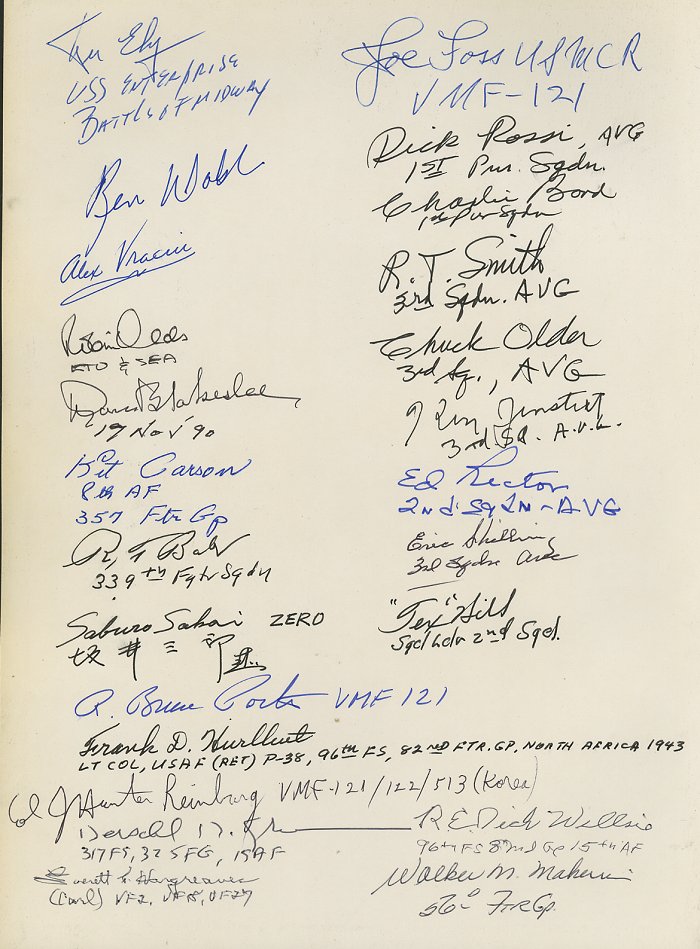 USS ENTERPRISE
BATTLE OF MIDWAY
Ben
Alex Vraciu
Robin Olds
ETO & SEA
Don Blakeslee
17 NOV '90
Kit Carson
8th AF
357 Ftr Gp
339th Fgtr Sqdn
Saburo Sakai ZERO
坂井三郎
R. Bruce Porter VMF 121
Frank D. Hurlbut
LT COL, USAF (RET) P-38, 96th FS, 82ND FTR. GP, NORTH AFRICA 1943
Col J Hunter Reinburg VMF-121/122/513 (Korea)
317 FS, 325 FG, 15 AF
Everett C. Hargreaves
VF2,
Joe Foss USMCR
VMF-121
Dick Rossi, AVG
1ST Pur. Sqdn.
Charlie Bond
1st Pur Sqdn
R. T. Smith
3rd Sqdn. AVG
Chuck Older
3rd Sq., AVG
3rd SQ. A.V.G.
Ed Rector
2nd Sqdn - AVG
Eric Shilling
3rd Sqdn
"Tex" Hill
Sqd Ldr 2nd Sqd.
R.E. Dick Willsie
96th FS 82nd Gp 15th AF
Walker M. Mahurin
56th FTR Gp.